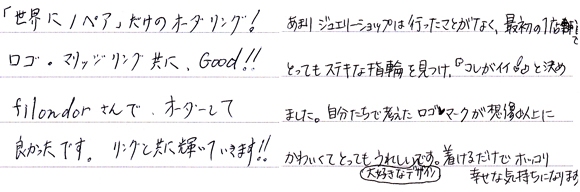 「世界に1ペア」だけのオーダーリング!
ロゴ・マリッジリング共に、Good!!
filondorさんで、オーダーして
良かったです。リングと共に輝いていきます!!
あまりジュエリーショップは行ったことがなく、最初の1店舗で
とってもステキな指輪を見つけ、『コレがイイ♪』と決め
ました。自分たちで考えたロゴ♥マークが想像以上に
かわいくてとってもうれしいです。着けるだけでホッコリ
大好きなデザイン
幸せな気持ちになります